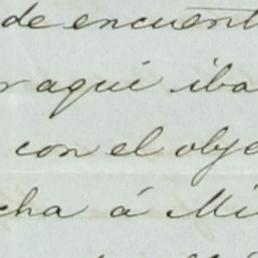 de encuent
r aqui iba
con el obje
cha á Mi